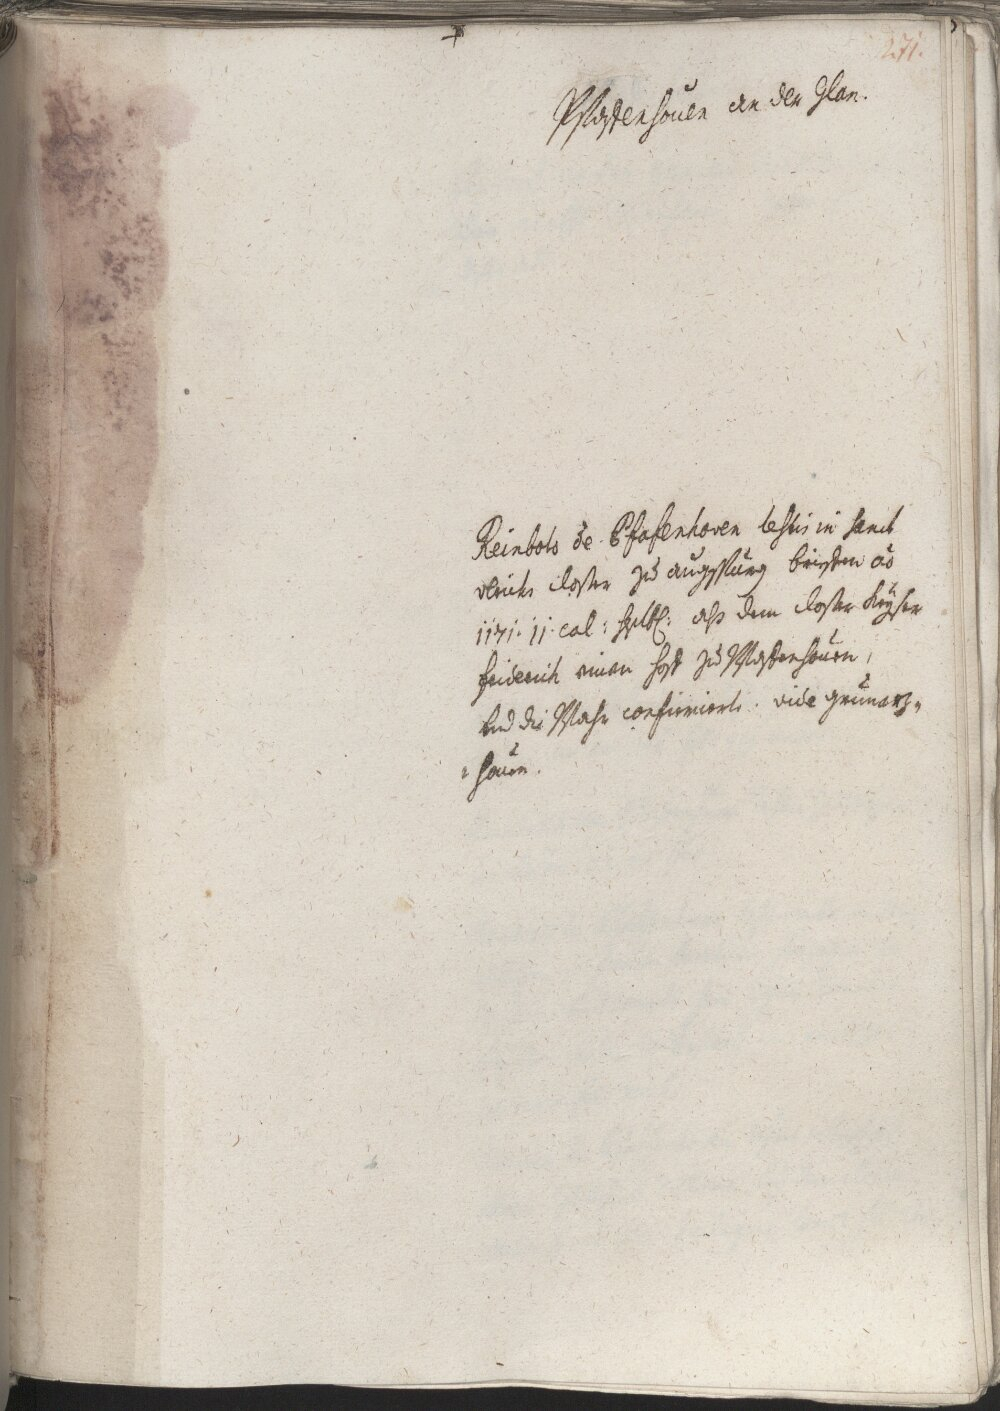 271.
Pfaffenhouen an der Glan.
Reinboto de Pfafenhoven testis in sanct
vlrichs closter zu augspurg brieffen ao
1171. 11. cal: septb: alß dem closter Keyser
friderich einen hoff zu Pfaffenhouen,
vnd die Pfahr confirmiert. vide grünarz=
=houen.